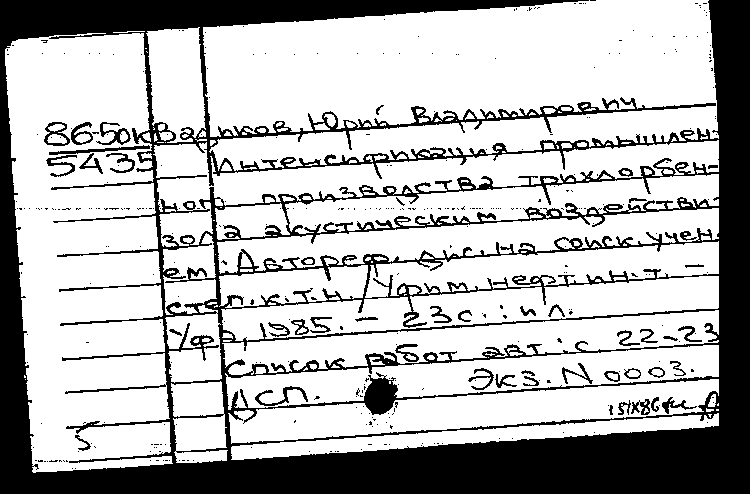 86-50к Вадиков, Юрий Владимирович.
5435 Интенсификация промышлен-
ного производства трихлорбен-
зола акустическим воздействи-
ем : Автореф. дис. на соиск. учен.
степ. к.т.н. / Уфим. нефт. ин-т. –
Уфа, 1985. – 23 с. : ил.
Список работ авт.: с. 22-23
ДСП. Экз. N 0003.
5